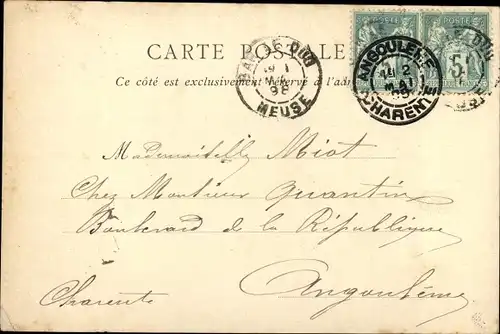 CARTE POSTALE
Ce côté est exclusivement réservé à l'adr
BAR-LE-DUC
MAI
98
MEUSE
ANGOULEME
2
MAI
98
CHARENTE
5
Mademoiselle Miot
Chez Monsieur Quantin
Boulevard de la République
Angoulême
Charente